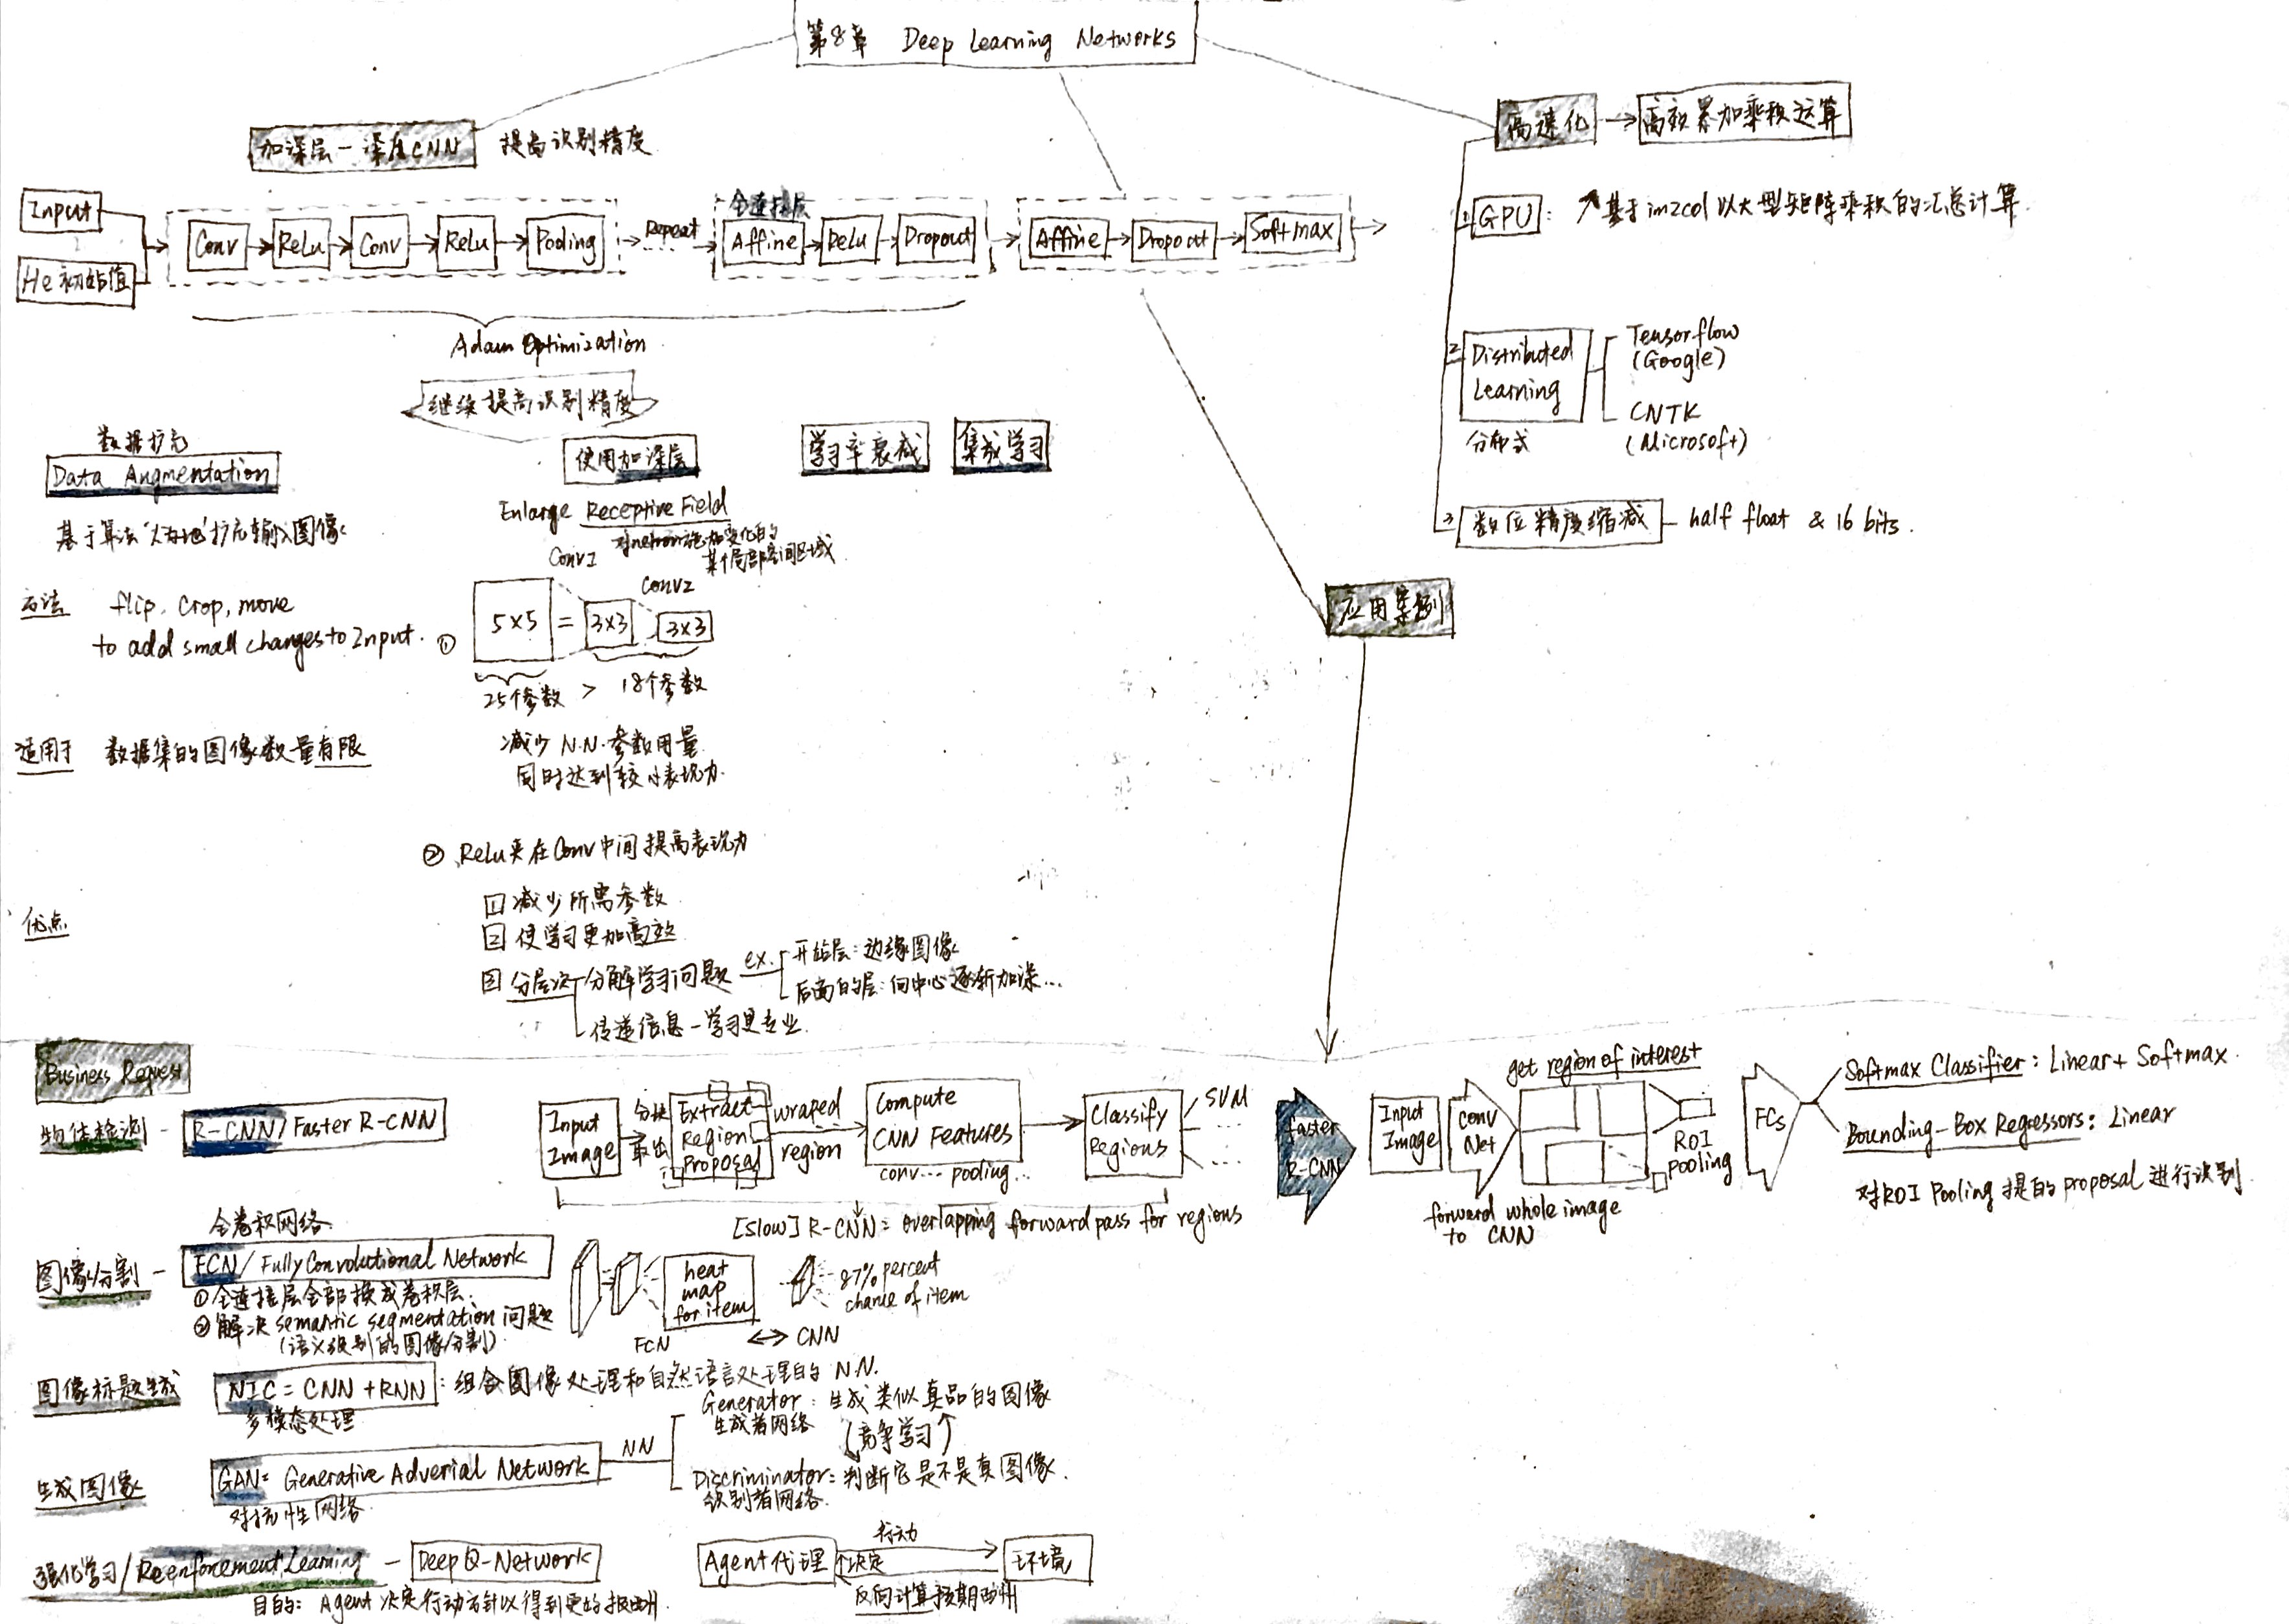 第8章 Deep Learning Networks
加深层－深度CNN 提高识别精度
Input
He初始值
Conv ReLu Conv ReLu Pooling
Repeat
全连接层
Affine ReLu Dropout
Affine Dropout Softmax
Adam Optimization
继续提高识别精度
数据扩充
Data Augmentation
基于算法"人为地"扩充输入图像
方法 flip, crop, move
to add small changes to Input.
适用于 数据集的图像数量有限
使用加深层
Enlarge Receptive Field
对neuron施加变化的
某个局部空间区域
Conv1
Conv2
① 5×5 = 3×3 3×3
25个参数 > 18个参数
减少 N.N. 参数用量
同时达到较 表现力.
② ReLu夹在Conv中间提高表现力
优点
1 减少所需参数
2 使学习更加高效
3 分层次 分解学习问题 ex.
开始层: 边缘图像
后面的层: 向中心逐渐加深...
传递信息－学习更专业.
学习率衰减
集成学习
高速化 高效累加乘积运算
1 GPU: 基于im2col以大型矩阵乘积的汇总计算.
2 Distributed
Learning
分布式
Tensorflow
(Google)
CNTK
(Microsoft)
3 数位精度缩减 half float & 16 bits.
应用案例
Business Request
物体检测 - R-CNN/Faster R-CNN
Input
Image
分块
取出
Extract
Region
Proposal
wraped
region
Compute
CNN Features
conv... pooling...
Classify
Regions
SVM
[slow] R-CNN = overlapping forward pass for regions
faster
R-CNN
Input
Image
Conv
Net
get region of interest
forward whole image
to CNN
ROI
Pooling
FCs
Softmax Classifier: Linear + Softmax.
Bounding-Box Regressors: Linear
对ROI Pooling 提的 proposal 进行识别
全卷积网络
图像分割 - FCN/ Fully Convolutional Network
①全连接层全部换成卷积层.
②解决 semantic segmentation 问题
(语义级别的图像分割).
FCN
heat
map
for item
CNN
87% percent
chance of item
图像标题生成 NIC = CNN + RNN: 组合图像处理和自然语言处理的 N.N.
多模态处理
生成图像 GAN= Generative Adverial Network
对抗性网络
NN
Generator: 生成类似真品的图像
生成者网络
(竞争学习)
Discriminator: 判断它是不是真图像.
识别者网络.
强化学习/Reenforement Learning - Deep Q-Network
目的: Agent 决定行动方针以得到更 报酬.
Agent代理
行动
决定
环境
反向计算预期 酬